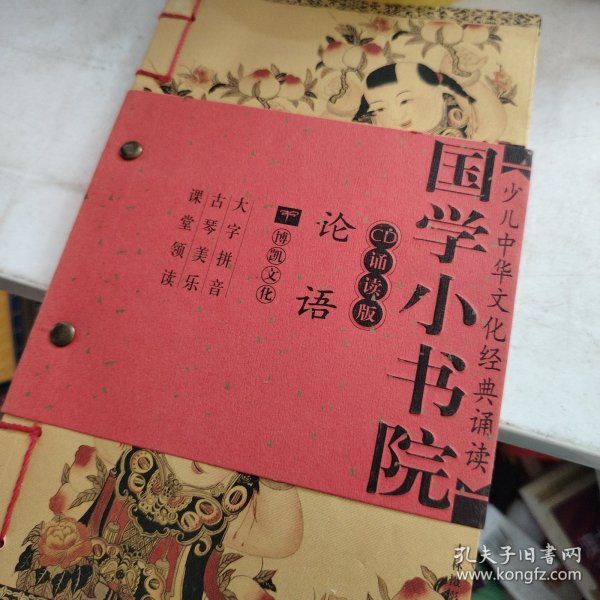 少儿中华文化经典诵读
国学小书院
CD诵读版
论语
博凯文化
大字拼音
古琴美乐
课堂领读
孔夫子旧书网
www.kongfz.com